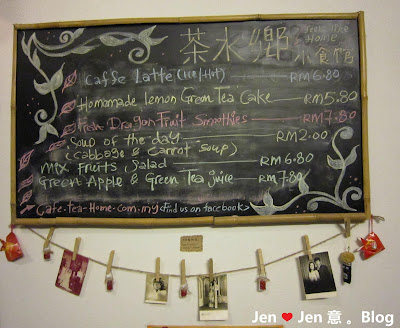 茶水鄉 Feels like Home
小食館
Caffe Latte (Ice/Hot) RM6.80
Homamade lemon Green Tea Cake RM5.80
Fresh Dragon Fruit Smoothies RM7.80
Soup of the day RM2.00
(Cabbage & Carrot Soup)
Mix Fruits Salad RM6.80
Green Apple & Green Tea juice RM7.80
Cafe-Tea-Home.com.my <Find us on facebook>
Jen ❤ Jen 意。Blog